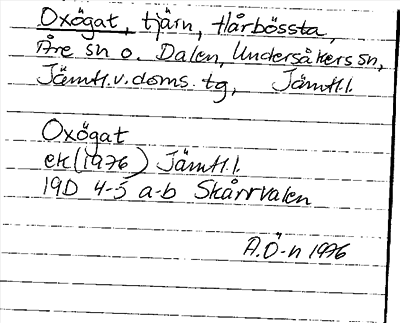 Oxögat, tjärn, Hårbössta,
Åre sn o. Dalen, Undersåkers sn,
Jämtl.v.doms.tg, Jämtl.l.
Oxögat
ek(1976) Jämtl.l.
19D 4-5 a-b Skårrvalen
A.Ö-n 1976